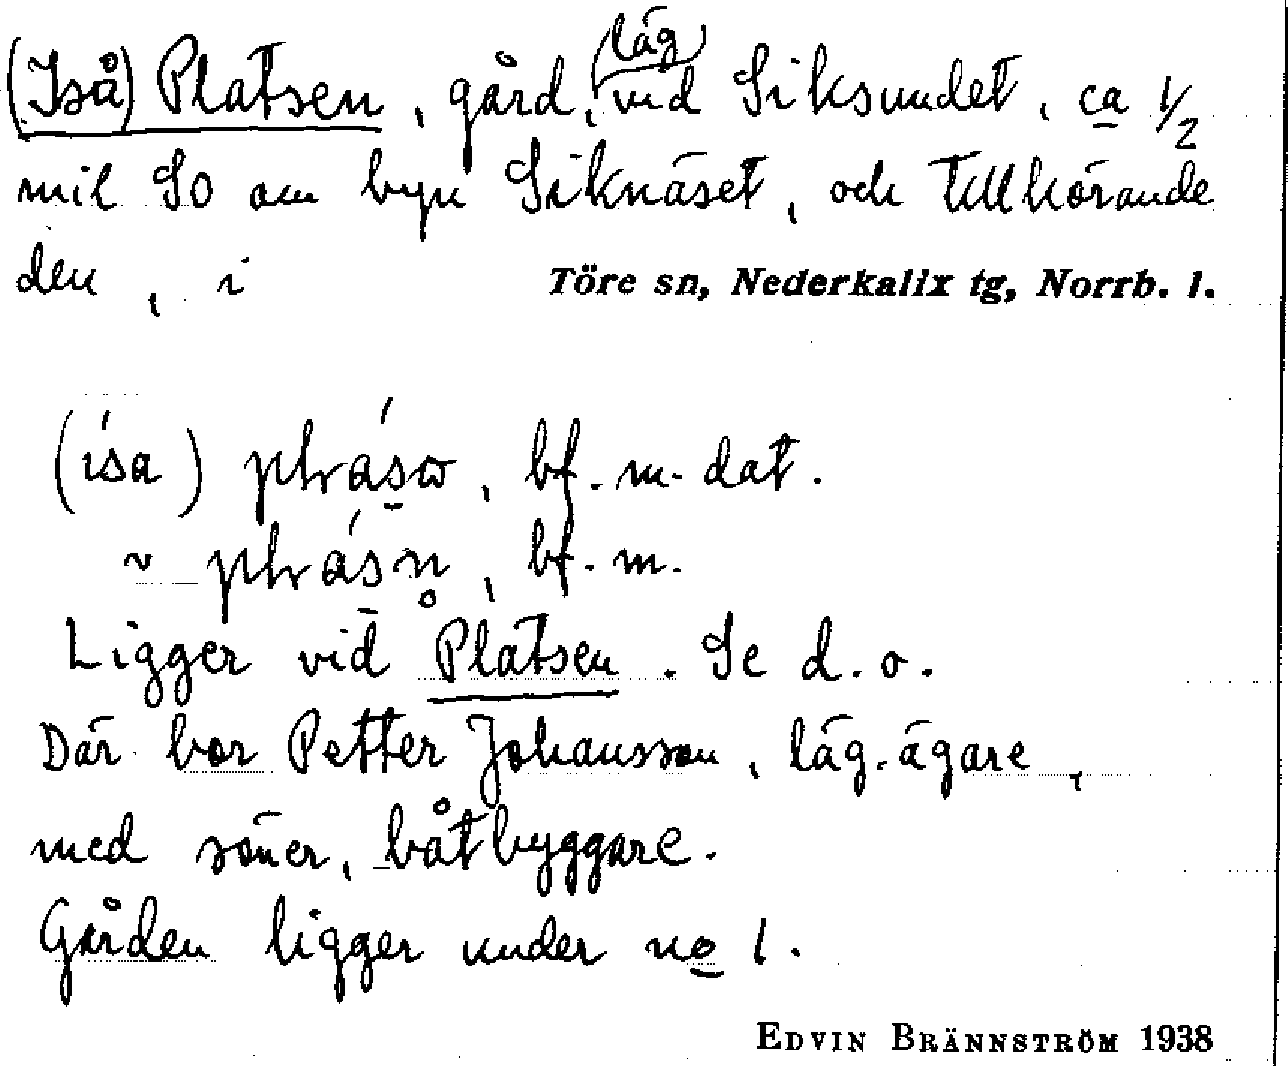 (Iså) Platsen, gård, (läg) vid Siksundet, ca 1/2
mil SO om byn Siknäset, och tillhörande
den, i Töre sn, Nederkalix tg, Norrb. l.
(ísa) bf. m. dat.
~ bf. m.
Ligger vid Platsen. Se d. o.
Där bor Petter Johansson, läg.ägare,
med söner, båtbyggare.
Gården ligger under no 1.
EDVIN BRÄNNSTRÖM 1938